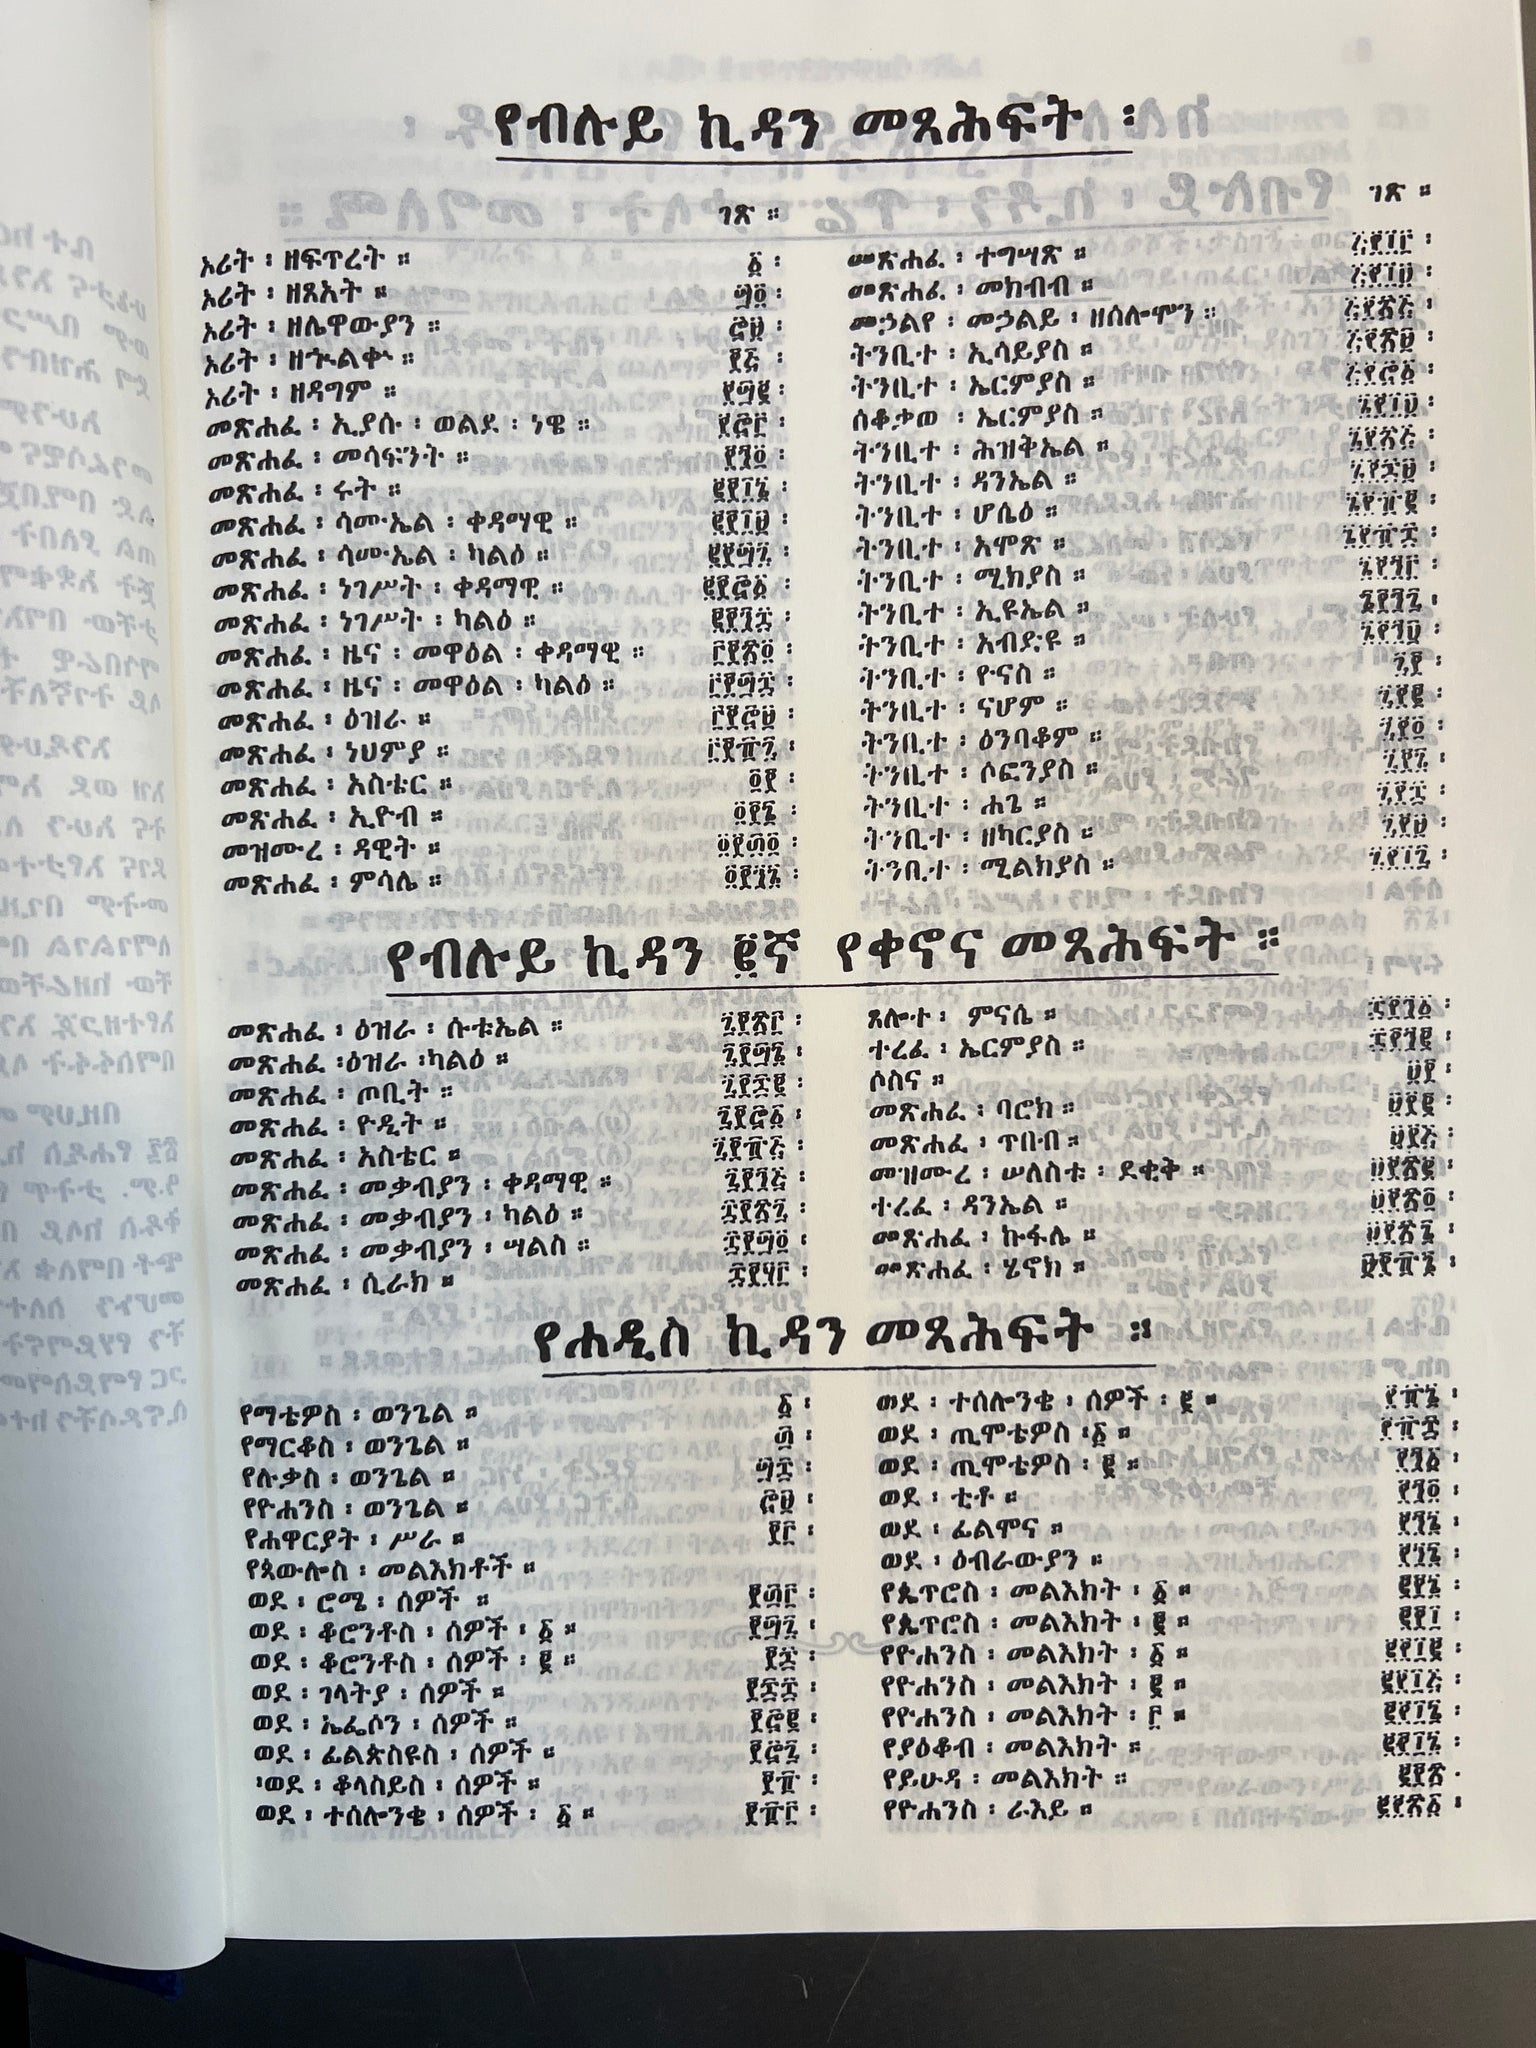 የብሉይ ኪዳን መጻሕፍት ፡
ገጽ ።
ኦሪት ፡ ዘፍጥረት ። ፩ ፡
ኦሪት ፡ ዘጸአት ። ፵፬ ፡
ኦሪት ፡ ዘሌዋውያን ። ፸፱ ፡
ኦሪት ፡ ዘኍልቍ ። ፻፭ ፡
ኦሪት ፡ ዘዳግም ። ፻፵፪ ፡
መጽሐፈ ፡ ኢያሱ ፡ ወልደ ፡ ነዌ ። ፻፸፫ ፡
መጽሐፈ ፡ መሳፍንት ። ፻፺፬ ፡
መጽሐፈ ፡ ሩት ። ፪፻፲፮ ፡
መጽሐፈ ፡ ሳሙኤል ፡ ቀዳማዊ ። ፪፻፲፱ ፡
መጽሐፈ ፡ ሳሙኤል ፡ ካልዕ ። ፪፻፵፯ ፡
መጽሐፈ ፡ ነገሥት ፡ ቀዳማዊ ። ፪፻፸፩ ፡
መጽሐፈ ፡ ነገሥት ፡ ካልዕ ። ፪፻፺፰ ፡
መጽሐፈ ፡ ዜና ፡ መዋዕል ፡ ቀዳማዊ ። ፫፻፳፬ ፡
መጽሐፈ ፡ ዜና ፡ መዋዕል ፡ ካልዕ ። ፫፻፵፰ ፡
መጽሐፈ ፡ ዕዝራ ። ፫፻፸፱ ፡
መጽሐፈ ፡ ነህምያ ። ፫፻፹፯ ፡
መጽሐፈ ፡ አስቴር ። ፬፻ ፡
መጽሐፈ ፡ ኢዮብ ። ፬፻፮ ፡
መዝሙረ ፡ ዳዊት ። ፬፻፴፬ ፡
መጽሐፈ ፡ ምሳሌ ። ፬፻፺፮ ፡
ገጽ ።
መጽሐፈ ፡ ተግሣጽ ። ፭፻፲፫ ፡
መጽሐፈ ፡ መክብብ ። ፭፻፲፱ ፡
መኃልየ ፡ መኃልይ ፡ ዘሰሎሞን ። ፭፻፳፭ ፡
ትንቢተ ፡ ኢሳይያስ ። ፭፻፳፱ ፡
ትንቢተ ፡ ኤርምያስ ። ፭፻፸፩ ፡
ሰቆቃወ ፡ ኤርምያስ ። ፮፻፲፱ ፡
ትንቢተ ፡ ሕዝቅኤል ። ፮፻፳፭ ፡
ትንቢተ ፡ ዳንኤል ። ፮፻፷፱ ፡
ትንቢተ ፡ ሆሴዕ ። ፮፻፹፪ ፡
ትንቢተ ፡ አሞጽ ። ፮፻፹፰ ፡
ትንቢተ ፡ ሚክያስ ። ፮፻፺፫ ፡
ትንቢተ ፡ ኢዩኤል ። ፮፻፺፯ ፡
ትንቢተ ፡ አብድዩ ። ፮፻፺፱ ፡
ትንቢተ ፡ ዮናስ ። ፯፻ ፡
ትንቢተ ፡ ናሆም ። ፯፻፪ ፡
ትንቢተ ፡ ዕንባቆም ። ፯፻፬ ፡
ትንቢተ ፡ ሶፎንያስ ። ፯፻፯ ፡
ትንቢተ ፡ ሐጌ ። ፯፻፰ ፡
ትንቢተ ፡ ዘካርያስ ። ፯፻፱ ፡
ትንቢተ ፡ ሚልክያስ ። ፯፻፲፯ ፡
የብሉይ ኪዳን ፪ኛ የቀኖና መጻሕፍት ።
መጽሐፈ ፡ ዕዝራ ፡ ሱቱኤል ። ፯፻፳፫ ፡
መጽሐፈ ፡ዕዝራ ፡ካልዕ ። ፯፻፵፮ ፡
መጽሐፈ ፡ ጦቢት ። ፯፻፷፪ ፡
መጽሐፈ ፡ ዮዲት ። ፯፻፸፩ ፡
መጽሐፈ ፡ አስቴር ። ፯፻፹፭ ፡
መጽሐፈ ፡ መቃብያን ፡ ቀዳማዊ ። ፯፻፺፭ ፡
መጽሐፈ ፡ መቃብያን ፡ ካልዕ ። ፰፻፳፯ ፡
መጽሐፈ ፡ መቃብያን ፡ ሣልስ ። ፰፻፵፬ ፡
መጽሐፈ ፡ ሲራክ ። ፰፻፶፫ ፡
ጸሎተ ፡ ምናሴ ። ፰፻፺፩ ፡
ተረፈ ፡ ኤርምያስ ። ፰፻፺፪ ፡
ሶስና ። ፱፻ ፡
መጽሐፈ ፡ ባሮክ ። ፱፻፪ ፡
መጽሐፈ ፡ ጥበብ ። ፱፻፭ ፡
መዝሙረ ፡ ሠለስቱ ፡ ደቂቅ ። ፱፻፳፪ ፡
ተረፈ ፡ ዳንኤል ። ፱፻፳፬ ፡
መጽሐፈ ፡ ኩፋሌ ። ፱፻፳፮ ፡
መጽሐፈ ፡ ሄኖክ ። ፱፻፹፮ ፡
የሐዲስ ኪዳን መጻሕፍት ።
የማቴዎስ ፡ ወንጌል ። ፩ ፡
የማርቆስ ፡ ወንጌል ። ፴ ፡
የሉቃስ ፡ ወንጌል ። ፵፰ ፡
የዮሐንስ ፡ ወንጌል ። ፸፱ ፡
የሐዋርያት ፡ ሥራ ። ፻፫ ፡
የጳውሎስ ፡ መልእክቶች ።
ወደ ፡ ሮሜ ፡ ሰዎች ። ፻፴፫ ፡
ወደ ፡ ቆሮንቶስ ፡ ሰዎች ፡ ፩ ። ፻፵፯ ፡
ወደ ፡ ቆሮንቶስ ፡ ሰዎች ፡ ፪ ። ፻፷ ፡
ወደ ፡ ገላትያ ፡ ሰዎች ። ፻፷፰ ፡
ወደ ፡ ኤፌሶን ፡ ሰዎች ። ፻፸፪ ፡
ወደ ፡ ፊልጵስዩስ ፡ ሰዎች ። ፻፸፯ ፡
ወደ ፡ ቆላስይስ ፡ ሰዎች ። ፻፹ ፡
ወደ ፡ ተሰሎንቄ ፡ ሰዎች ፡ ፩ ። ፻፹፫ ፡
ወደ ፡ ተሰሎንቄ ፡ ሰዎች ፡ ፪ ። ፻፹፮ ፡
ወደ ፡ ጢሞቴዎስ ፡፩ ። ፻፹፰ ፡
ወደ ፡ ጢሞቴዎስ ፡ ፪ ። ፻፺፩ ፡
ወደ ፡ ቲቶ ። ፻፺፬ ፡
ወደ ፡ ፊልሞና ። ፻፺፮ ፡
ወደ ፡ ዕብራውያን ። ፻፺፮ ፡
የጴጥሮስ ፡ መልእክት ፡ ፩ ። ፪፻፮ ፡
የጴጥሮስ ፡ መልእክት ፡ ፪ ። ፪፻፲ ፡
የዮሐንስ ፡ መልእክት ፡ ፩ ። ፪፻፲፪ ፡
የዮሐንስ ፡ መልእክት ፡ ፪ ። ፪፻፲፭ ፡
የዮሐንስ ፡ መልእክት ፡ ፫ ። ፪፻፲፮ ፡
የያዕቆብ ፡ መልእክት ። ፪፻፲፮ ፡
የይሁዳ ፡ መልእክት ። ፪፻፳ ፡
የዮሐንስ ፡ ራእይ ። ፪፻፳፩ ፡